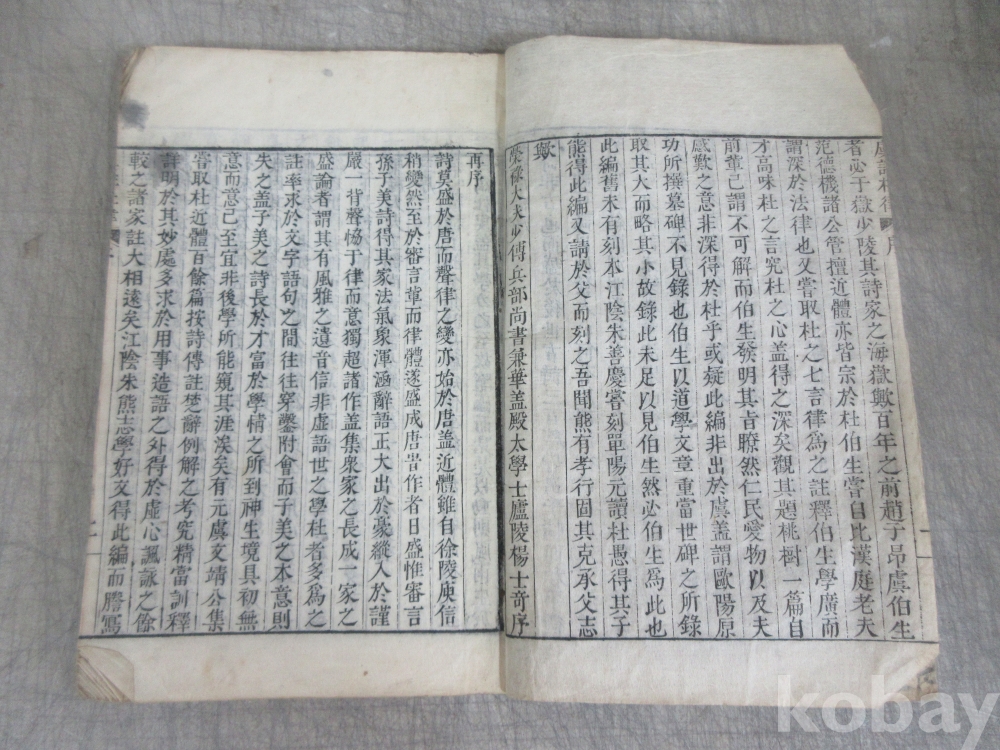 者必于嶽少陵其詩家之海嶽歟百年之前趙子昂虞伯生
范德機諸公管擅近體亦皆宗於杜伯生嘗自比漢庭老夫
謂深於法律也又嘗取杜之七言律為之註釋伯生學廣而
才高味杜之言究杜之心盖得之深矣觀其題桃樹一篇自
前軰已謂不可解而伯生發明其旨瞭然仁民愛物以及夫
感歎之意非深得於杜乎或疑此編非出於虞盖謂歐陽原
功所撰墓碑不見錄也伯生以道學文章重當世碑之所錄
取其大而略其小故錄此未足以見伯生然必伯生為此也
此編舊未有刻本江陰朱善慶嘗刻單陽元讀杜愚得其子
熊得此編又請於父而刻之吾聞熊有孝行固其克承父志
歟
榮祿大夫少傅兵部尚書兼華盖殿大學士廬陵楊士奇序
再序
詩莫盛於唐而聲律之變亦始於唐盖近體雖自徐陵庾信
稍變然至於審言軰而律體遂盛成唐昔作者日盛惟審言
孫子美詩得其家法氣象渾涵辭語正大出於豪縱入於謹
嚴一背聲恊于律而意獨超諸作盖集衆家之長成一家之
盛論者謂其有風雅之遺音信非虛語世之學杜者多為之
註率求於文字語句之間往往穿鑿附會而子美之本意則
失之盖子美之詩長於才富於學情之所到神生境具初無
意而意已至宜非後學所能窺其涯涘矣有元虞文靖公集
嘗取杜近體百餘篇按詩傳註楚辭例解之考究精當訓釋
詳明於其妙處多求於用事造語之外得於虛心諷詠之餘
較之諸家註大相遠矣江陰朱熊志學好文得此編而謄寫
二
kobay